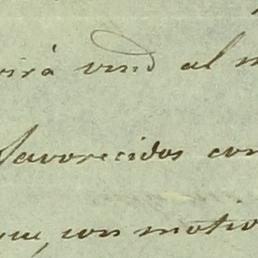 irá vmd al
favorecidos con
que, con motivo